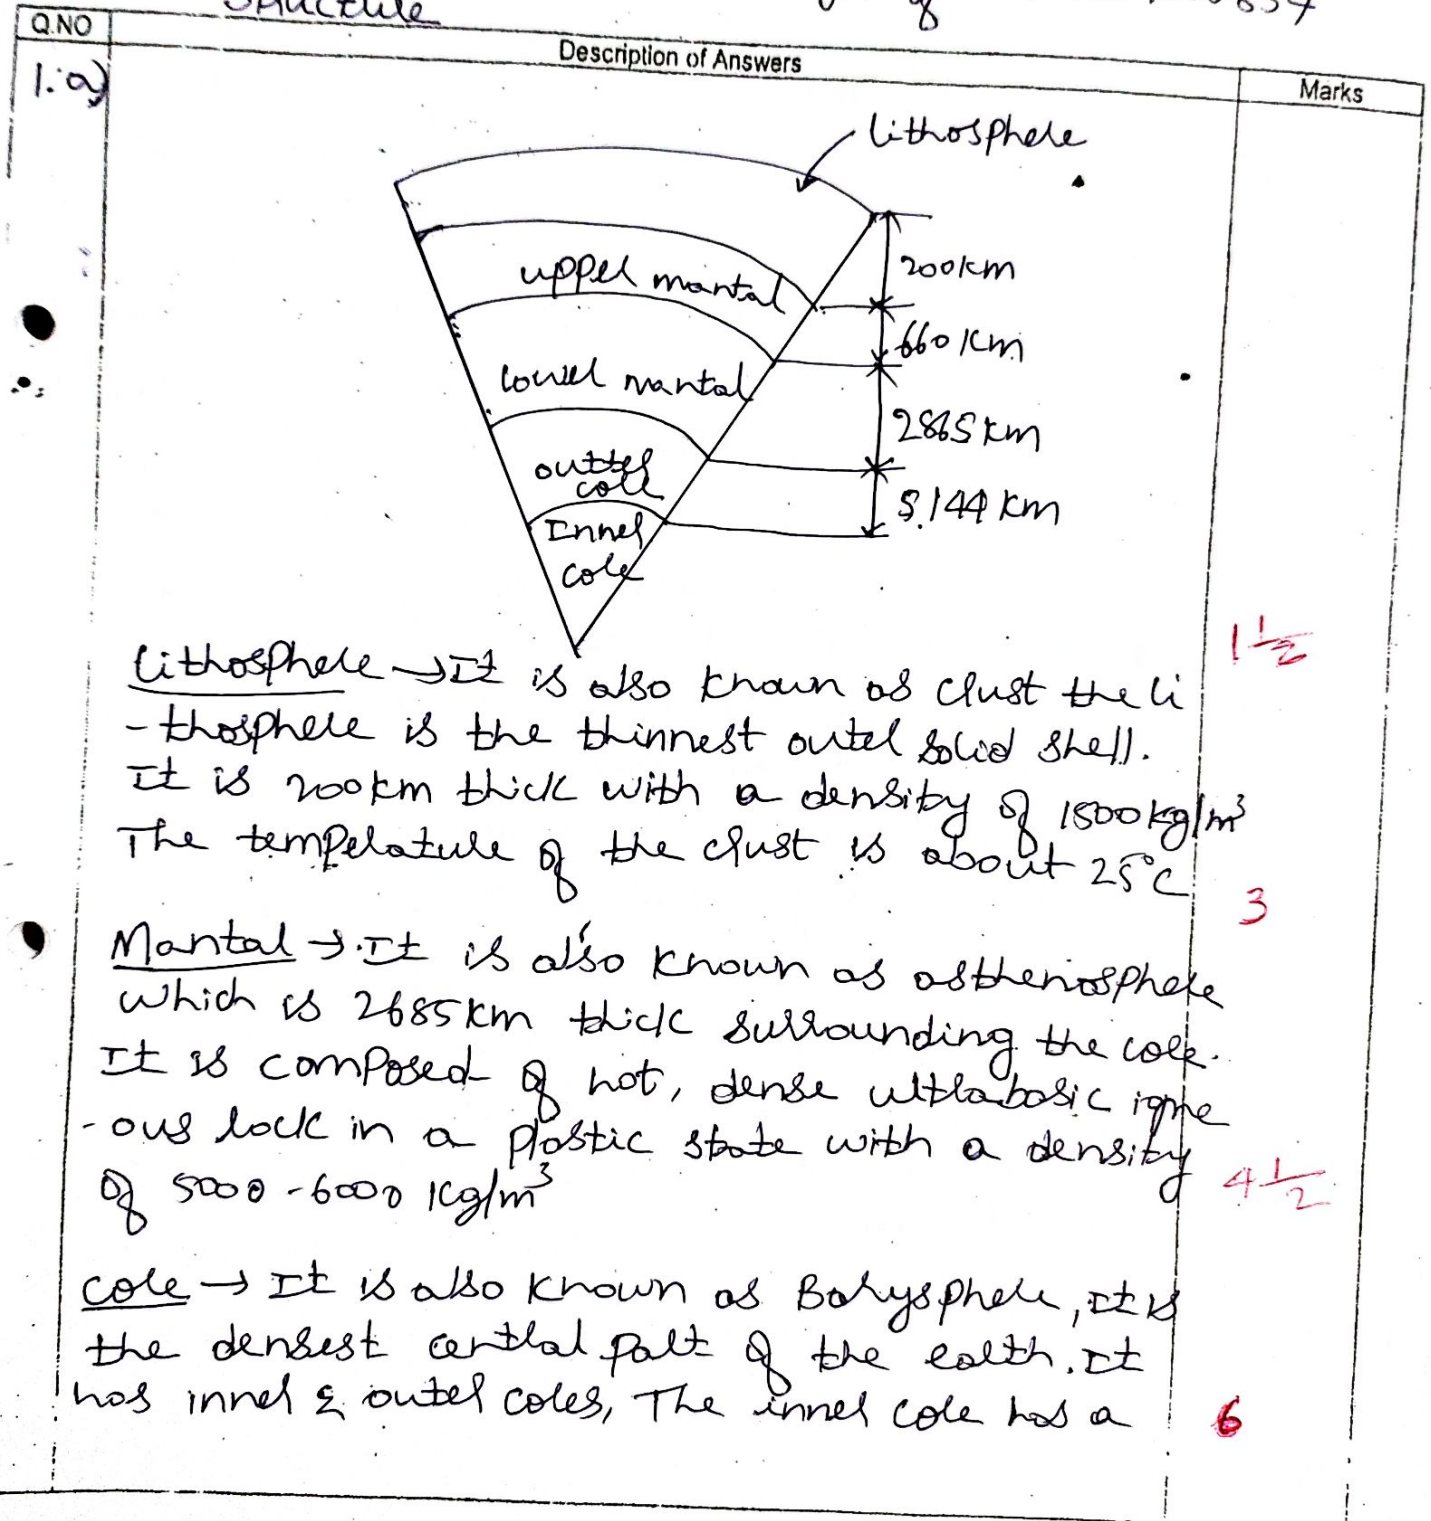 Structure
Q.NO
Description of Answers
Marks
1. a)
lithosphere
200km
upper mantal
660 km
lower mantal
2865 km
outter
core
5.144 km
Inner
core
1 1/2
Lithosphere → It is also known as crust the li
- thosphere is the thinnest outer solid shell.
It is 200km thick with a density of 1500kg/m³
The temperature of the crust is about 25°C
3
Mantal → It is also known as asthenosphere
which is 2685km thick surrounding the core.
It is composed of hot, dense ultrabasic igne
- ous rock in a plastic state with a density
of 5000 - 6000 kg/m³
4 1/2
core → It is also known as Barysphere, it is
the densest central part of the earth. It
has inner & outer cores, The inner core has a
6